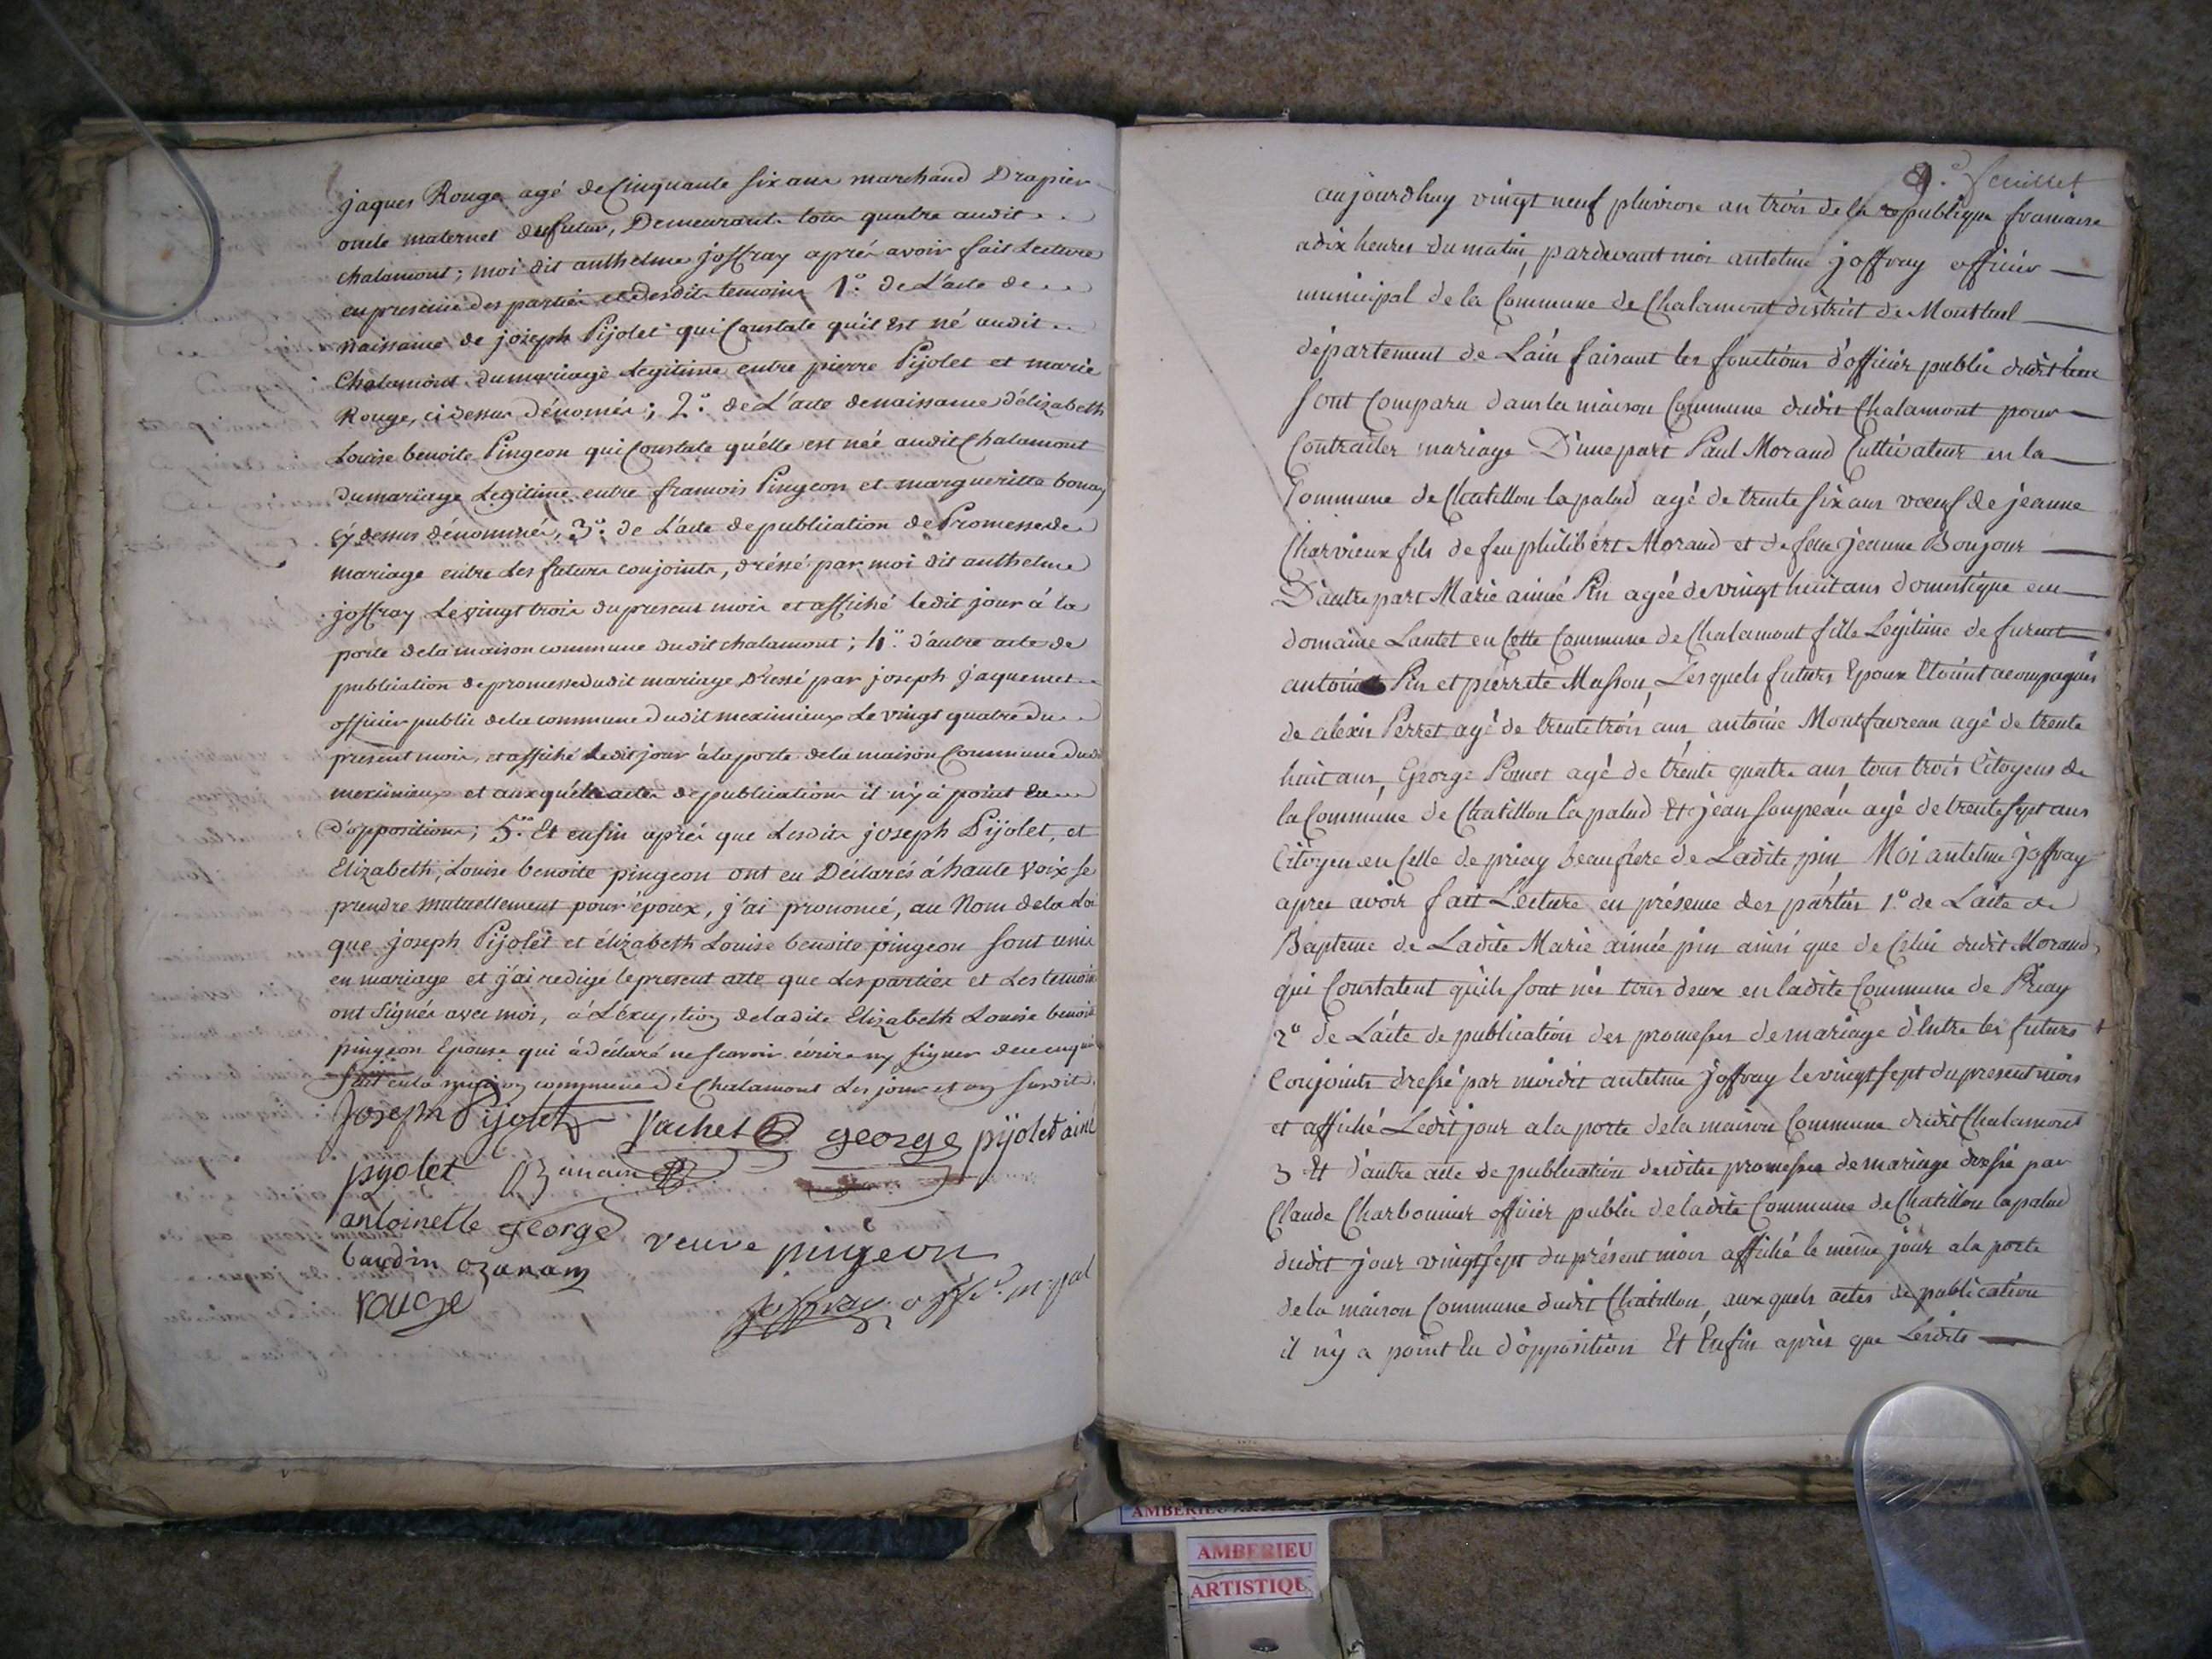 jaques Rouge agé de Cinquante six ans marchand Drapier
oncle maternel du futur, Demeurants tous quatre audit
chalamont; moi dit anthelme joffray aprés avoir fait Lecture
en presence des parties et desdits temoins 1.º de L'acte de
naissance de joseph Pijolet qui Constate qu'il est né audit
Chalamont du mariage Legitime entre pierre Pijolet et marie
Rouge, ci dessus dénomés; 2.º de L'acte de naissance d'élizabeth
Louise benoite Pingeon qui Constate qu'elle est née audit Chalamont
du mariage Legitime entre francois Pingeon et margueritte bonay
cy dessus dénommés, 3.º de L'acte de publication de Promesse de
mariage entre Les futurs conjoints, dréssé par moi dit anthelme
joffray Le vingt trois du present mois et affiché ledit jour à la
porte de la maison commune dudit chalamont; 4.º d'autre acte de
publication de promesse dudit mariage Dressé par joseph jaquemet
officier public de la commune dudit meximieux Le vingt quatre du
présent mois, et affiché Ledit jour à la porte de la maison Commune dudit
meximieux et auxquels actes de publications il n'y à point eu
d'oppositions; 5.º Et enfin aprés que Lesdits joseph Pijolet, et
Elizabeth, Louise benoite pingeon ont eu Déclarés à haute Voix se
prendre mutuellement pour époux, j'ai prononcé, au Nom de la Loi
que joseph Pijolet et élizabeth Louise benoite pingeon sont unis
en mariage et j'ai redigé le present acte que Les parties et Les temoins
ont Signés avec moi, à L'exception de la dite Elizabeth Louise benoite
pingeon Epouse qui à déclaré ne scavoir écrire ny signer de ce enquis
fait en la maison commune de Chalamont Les jour et an susdits.
Joseph Pijolet Vachet george pijolet ainé
pijolet Ozanam
antoinette george veuve pingeon
baudin ozanam
rouge joffray off.er mpal
9.e feuillet
aujourdhuy vingt neuf pluviose an trois de la republique francaise
a dix heures du matin, pardevant moi antelme joffray officier
municipal de la Commune de Chalamont district de Montluel
département de Lain faisant les fonctions d'officier public dudit lieu
sont Comparu dans la maison Commune dudit Chalamont pour
Contracter mariage D'une part Paul Morand Cultivateur en la
Commune de Chatillon la palud agé de trente six ans vœuf de jeanne
Charvieux fils de feu philibert Morand et de feue jeanne Boujour
D'autre part Marie aimée Pin agée de vingt huit ans domestique au
domaine Lantet en Cette Commune de Chalamont fille Légitime de furent
antoine Pin et pierrete Masson, Lesquels futurs Epoux Etoint acompagnés
de alexis Perret agé de trente trois ans, antoine Montfavreau agé de trente
huit ans, George Pomet agé de trente quatre ans tous trois Citoyens de
la Commune de Chatillon la palud Et jean Soupeau agé de trente sept ans
Citoyen en Celle de priay beaufrere de Ladite pin Moi antelme joffray
apres avoir fait Lecture en présence des parties 1.º de L'acte de
Bapteme de Ladite Marie aimée pin ainsi que de Celui dudit Morand,
qui Constatent qu'ils sont nés tous deux en ladite Commune de Priay
2º de L'acte de publication des promesses de mariage d'Entre les futurs
Conjoints dressé par moidit antelme joffray le vingt sept du present mois
et affiché Ledit jour a la porte de la maison Commune dudit Chalamont
3 Et d'autre acte de publication desdites promesses de mariage dressé par
Claude Charbonnier officier public de ladite Commune de Chatillon la palud
dudit jour vingt sept du présent mois affiché le même jour a la porte
de la maison Commune dudit Chatillon, aux quels actes de publication
il n'y a point Eu d'opposition Et Enfin après que Lesdits